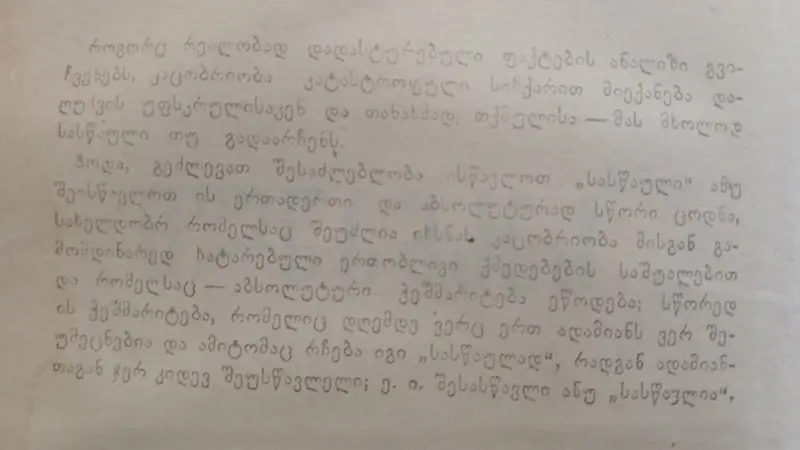 როგორც რეალობად დადასტურებული ფაქტების ანალიზი გვი-
ჩვენებს, კაცობრიობა კატასტროფული სიჩქარით მიექანება და-
ღუპვის უფსკრულისაკენ და თანახმად თქმულისა — მას მხოლოდ
სასწაული თუ გადაარჩენს.
ჰოდა, გეძლევათ შესაძლებლობა ისწავლოთ „სასწაული“ ანუ
შეისწავლოთ ის ერთადერთი და აბსოლუტურად სწორი ცოდნა,
სახელდობრ რომელსაც შეუძლია იხსნას კაცობრიობა მისგან გა-
მომდინარედ ჩატარებული ერთობლივი ქმედებების საშუალებით
და რომელსაც — აბსოლუტური ჭეშმარიტება ეწოდება; სწორედ
ის ჭეშმარიტება, რომელიც დღემდე ვერც ერთ ადამიანს ვერ შე-
უმეცნებია და ამიტომაც რჩება იგი „სასწაულად“, რადგან ადამიან-
თაგან ჯერ კიდევ შეუსწავლელი; ე. ი. შესასწავლი ანუ „სასწავლია“.